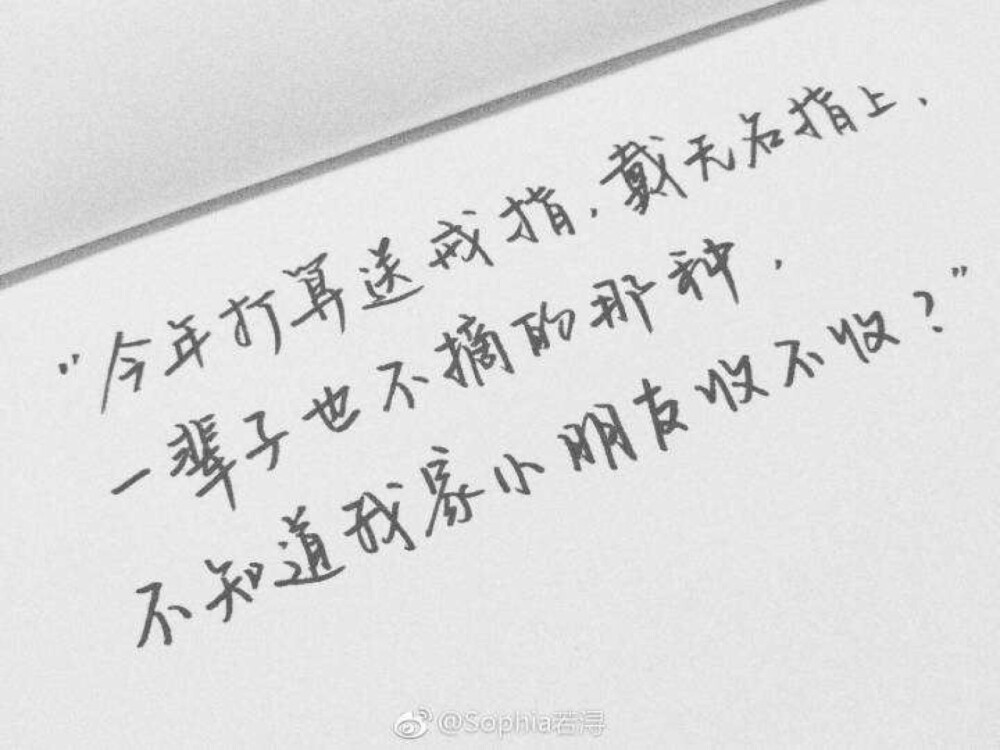 “今年打算送戒指,戴无名指上,
一辈子也不摘的那种,
不知道我家小朋友收不收?”
@Sophia若浔